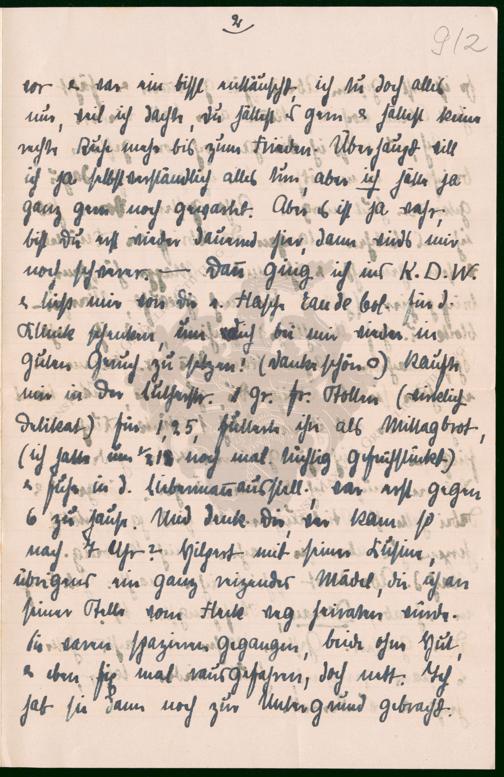 2
912
vor & war ein bissl enttäuscht, ich tu doch alles
nur, weil ich dachte, du hättest es gern & hättest keine
rechte Ruhe mehr bis zum Frieden. Überhaupt will
ich ja selbstverständlich alles tun, aber ich hätte ja
ganz gern noch gewartet. Aber es ist ja wahr,
bist Du erst wieder dauernd hier, dann wird's mir
noch schwerer. — Dann ging ich ins K.D.W.
& ließ mir von dir e. Flasche Eau de Col. für d.
Klinik schenken, um dich bei mir wieder in
guten Geruch zu setzen! (Dankeschön) kaufte
mir in der Lutherstr. 1 gr. fr. Stollen (wirklich
delikat) für 1,25, futterte ihn als Mittagbrot,
(ich hatte um noch mal tüchtig gefrühstückt)
& fuhr in d. Liebermannausstell., war erst gegen
6 zu Hause. Und denk Dir, wer kam so
nach 7 Uhr? Hilpert mit seiner Kusine,
übrigens ein ganz reizendes Mädel, die ich an
seiner Stelle vom Fleck weg heiraten würde.
Sie waren spazieren gegangen, beide ohne Hut,
& eben so mal rausgefahren, doch nett. Ich
hab sie dann noch zur Untergrund gebracht.